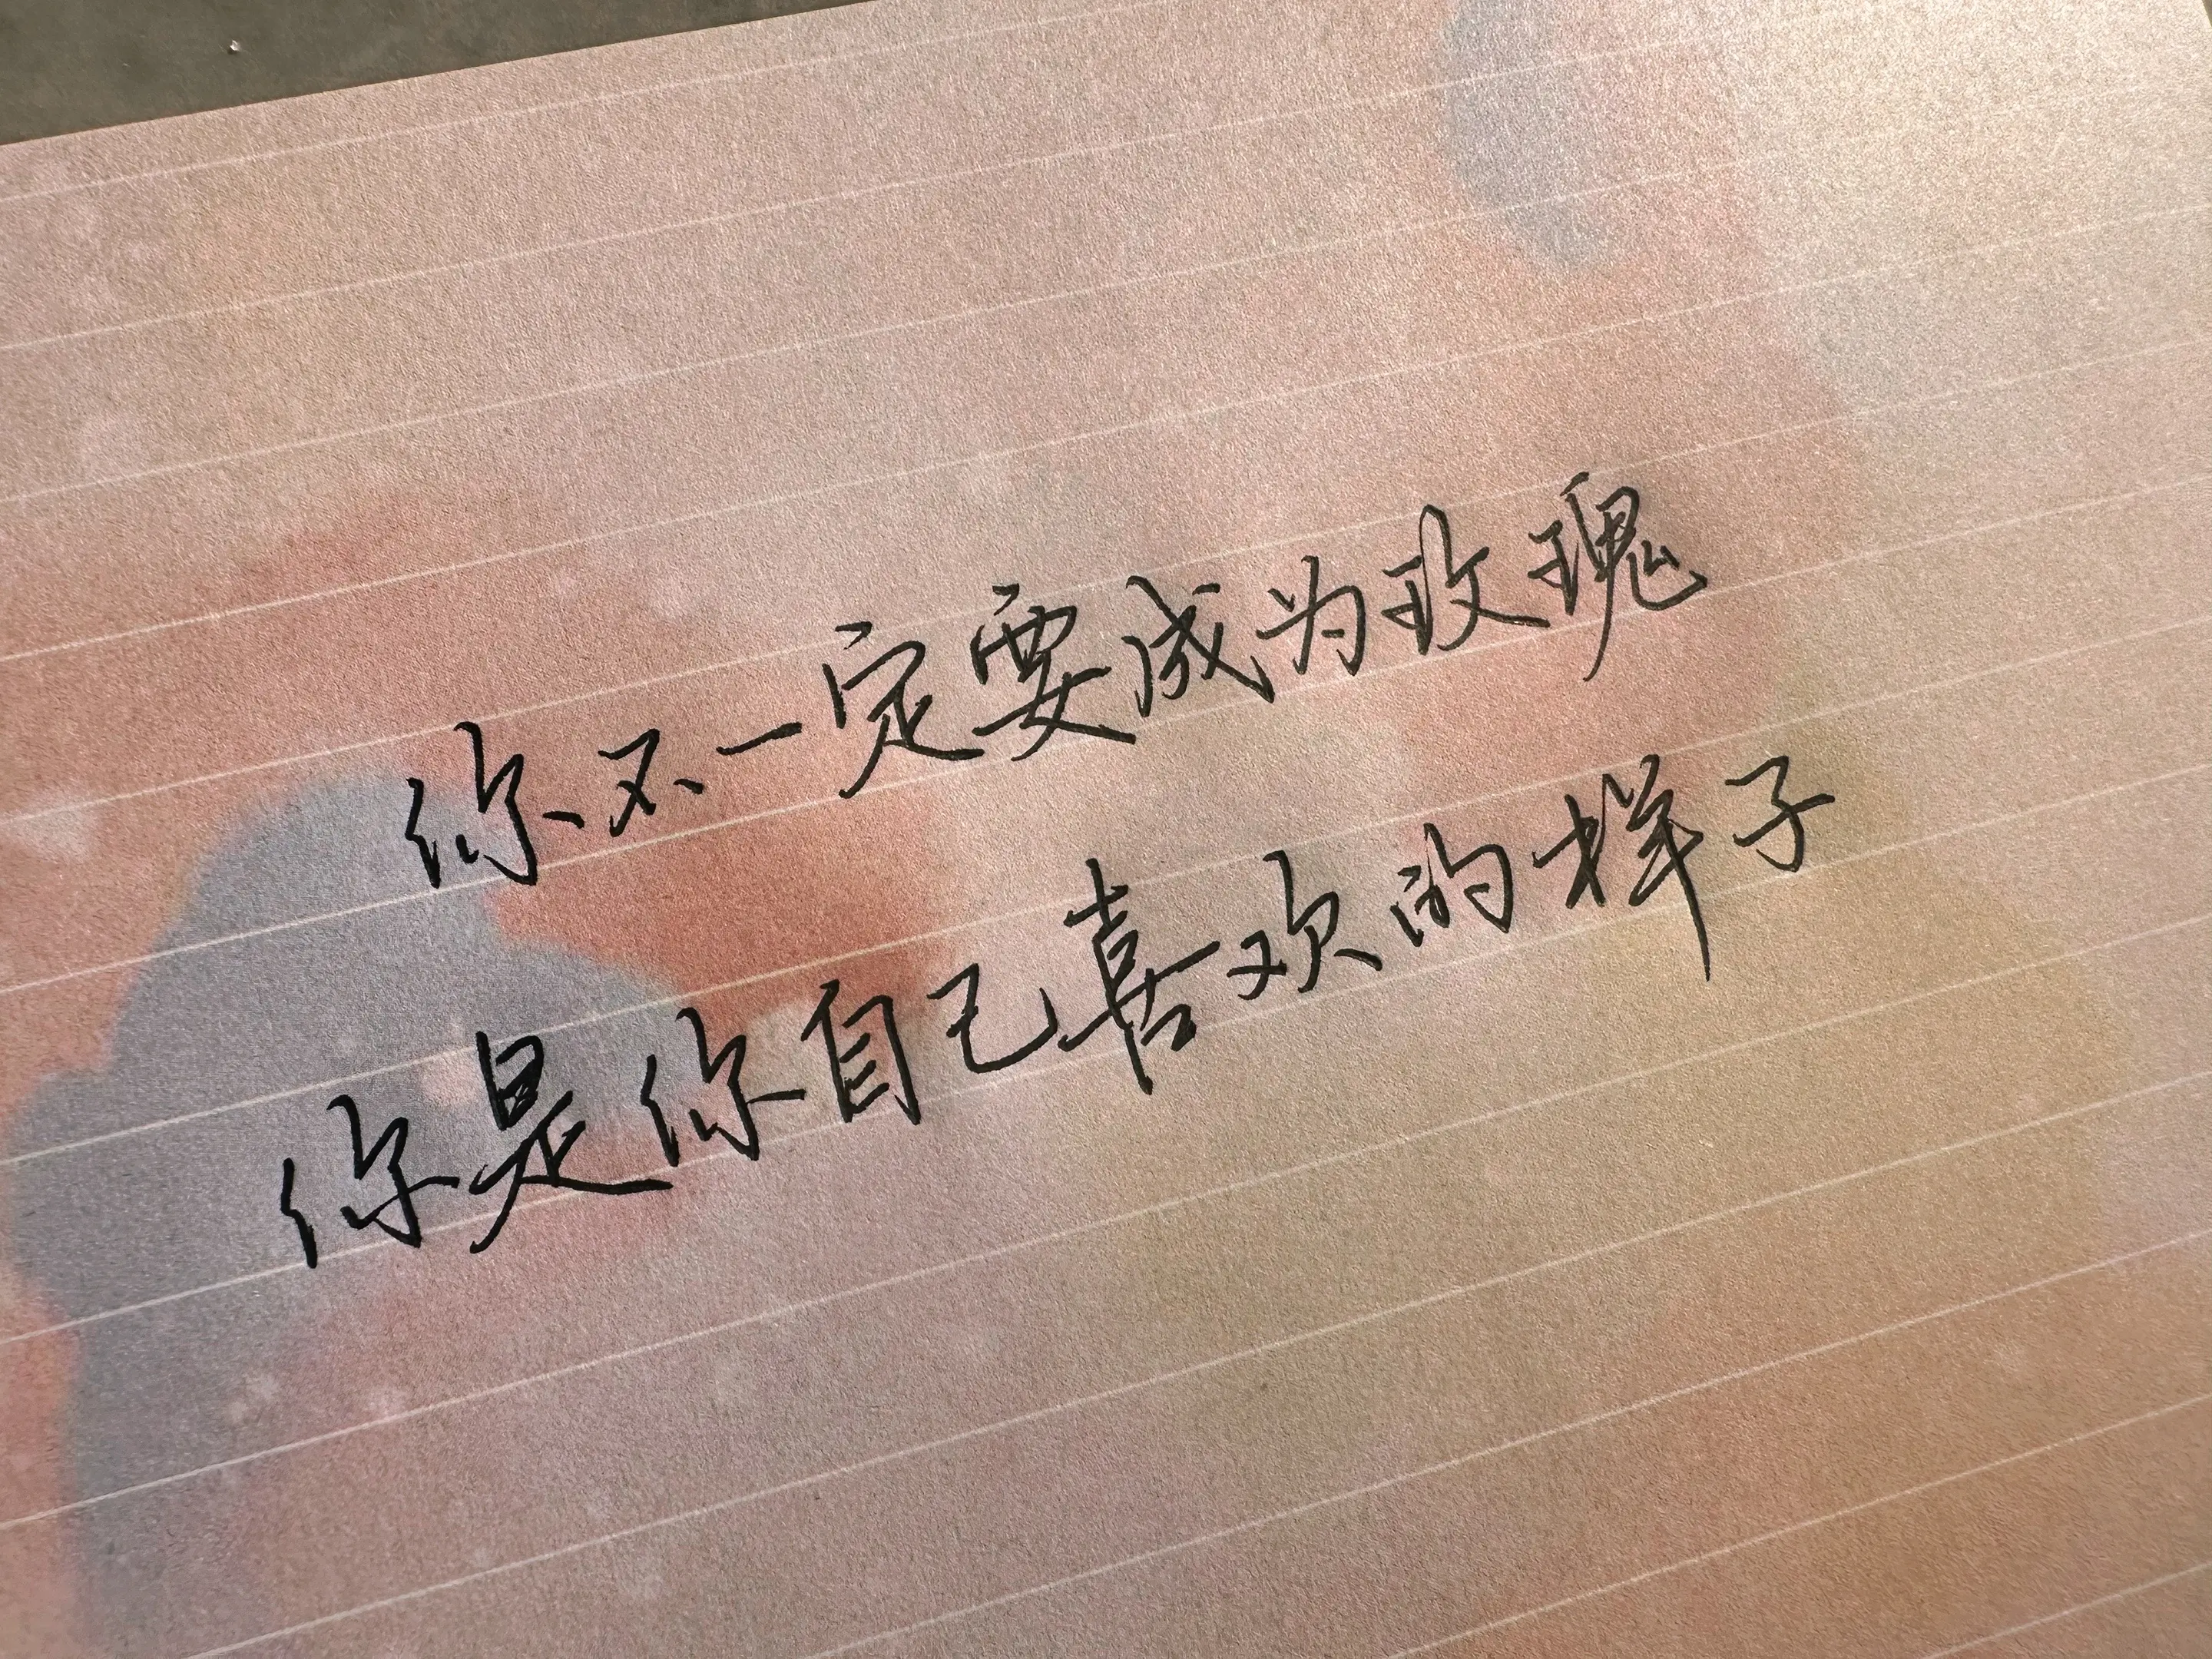 你不一定要成为玫瑰
你是你自己喜欢的样子